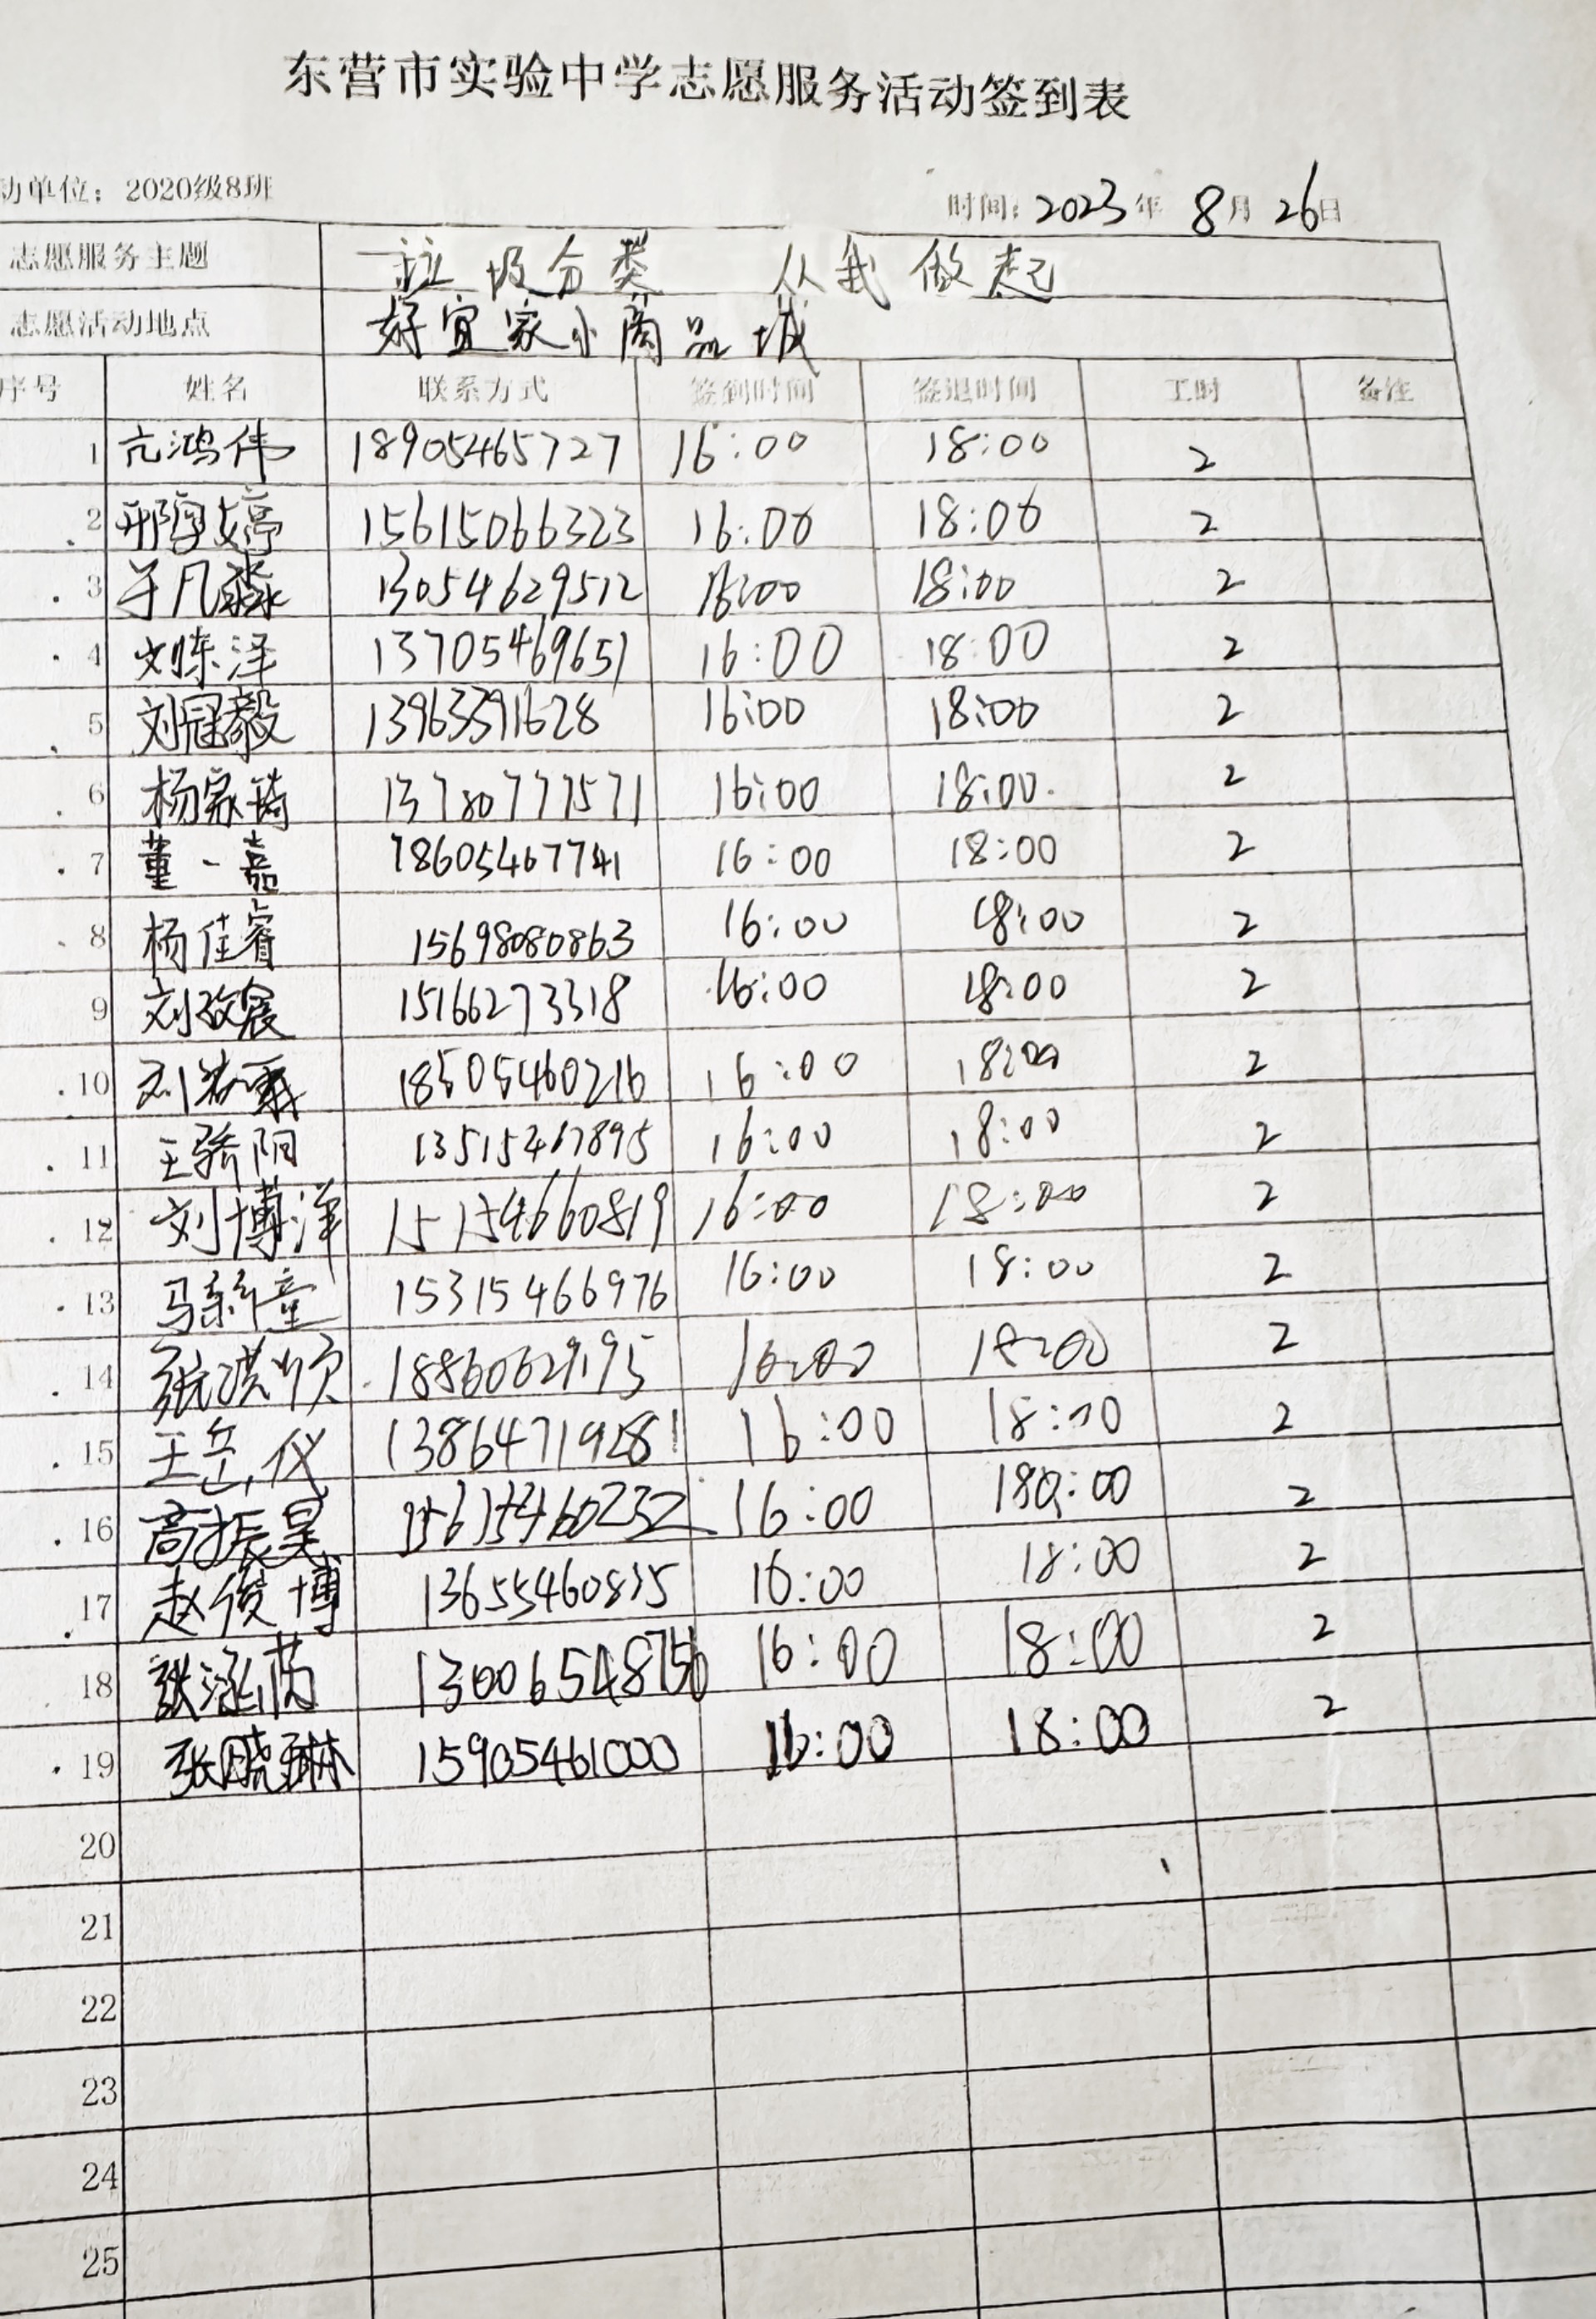 东营市实验中学志愿服务活动签到表
动单位：2020级8班 时间：2023年 8月 26日
志愿服务主题 垃圾分类 从我做起
志愿活动地点 好宜家小商品城
序号 姓名 联系方式 签到时间 签退时间 工时 备注
1 亓鸿伟 18905465727 16:00 18:00 2
2 15615066323 16:00 18:00 2
3 于凡淼 13054629512 16:00 18:00 2
4 刘东泽 13705469651 16:00 18:00 2
5 刘冠毅 13963391628 16:00 18:00 2
6 杨家琦 13780777571 16:00 18:00 2
7 董一嘉 18605467741 16:00 18:00 2
8 杨佳睿 15698080863 16:00 18:00 2
9 刘政宸 15166273318 16:00 18:00 2
10 18505460216 16:00 18:00 2
11 王骄阳 13515467895 16:00 18:00 2
12 刘博洋 15154660819 16:00 18:00 2
13 马新童 15315466976 16:00 18:00 2
14 18860629195 16:00 18:00 2
15 王岳仪 13864719281 16:00 18:00 2
16 高振昊 16:00 180:00 2
17 赵俊博 13655460835 16:00 18:00 2
18 16:00 18:00 2
19 张晓琳 15905461000 16:00 18:00 2
20
21
22
23
24
25